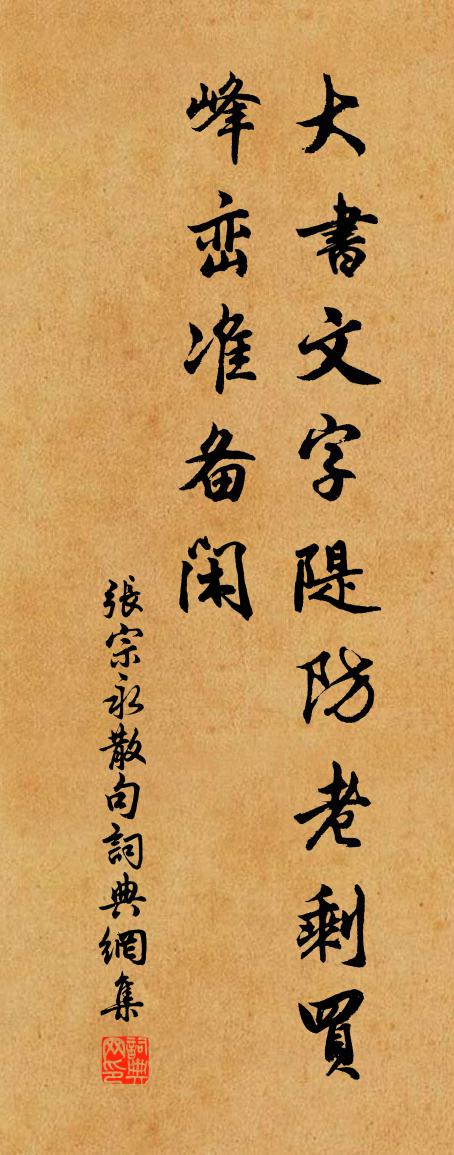 大書文字隄防老剩買
峰峦准备閑
張宗永散句詞典網集
詞典网印